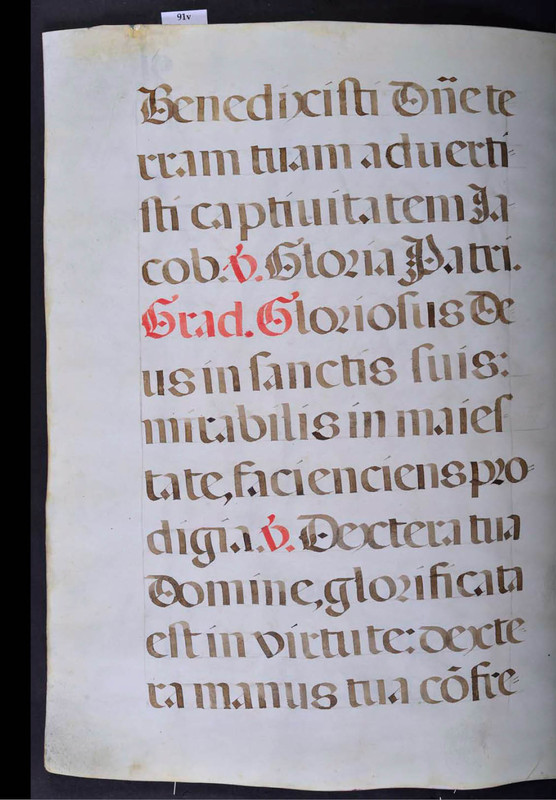 91v
Benedixisti Dñe te
rram tuam aduerti-
sti captiuitatem Ja
cob. v. Gloria Patri.
Grad. Gloriosus De
us in sanctis suis:
mirabilis in maies
tate, facienciens pro-
digia. v. Dextera tua
Domine, glorificata
est in virtute: dexte
ra manus tua cõfre-